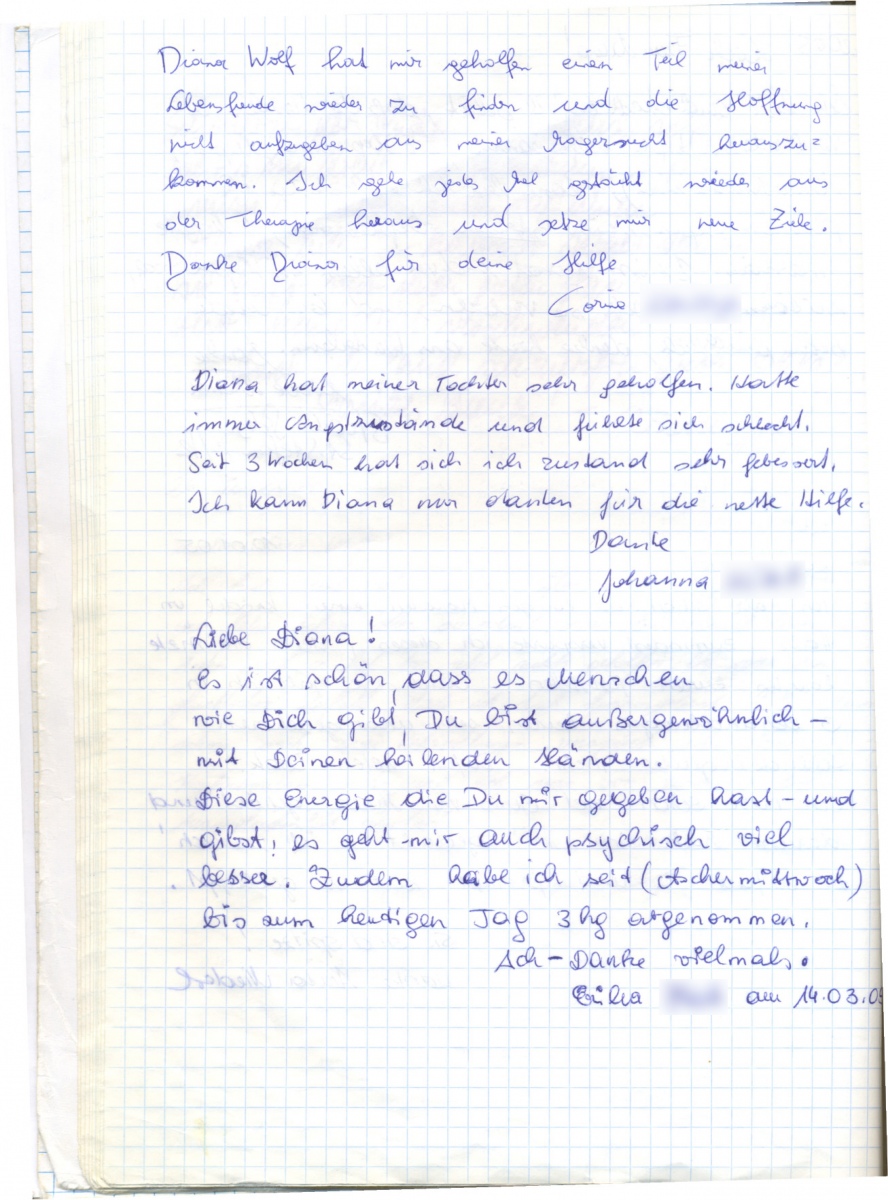 Diana Wolf hat mir geholfen einen Teil meiner
Lebensfreude wieder zu finden und die Hoffnung
nicht aufzugeben aus meiner Magersucht herauszu=
kommen. Ich gehe jedes Mal gestärkt wieder aus
der Therapie heraus und setze mir neue Ziele.
Danke Diana für deine Hilfe
Corina
Diana hat meiner Tochter sehr geholfen. Hatte
immer Angstzustände und fühlte sich schlecht.
Seit 3 Wochen hat sich ich zustand sehr gebessert.
Ich kann Diana nur danken für die nette Hilfe.
Danke
Johanna
Liebe Diana!
Es ist schön, dass es Menschen
wie Dich gibt, Du bist außergewöhnlich –
mit Deinen heilenden Händen.
Diese Energie die Du mir gegeben hast – und
gibst, es geht mir auch psychisch viel
besser. Zudem habe ich seit (Aschermittwoch)
bis zum heutigen Tag 3 kg abgenommen.
Ach – Danke vielmals.
Erika am 14.03.05